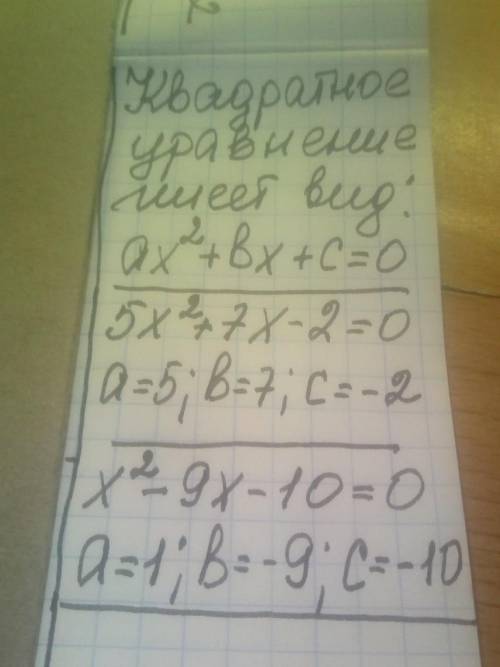 Квадратное
уравнение
имеет вид:
ax²+bx+c=0
5x²+7x-2=0
a=5; b=7; c=-2
x²-9x-10=0
a=1; b=-9; c=-10